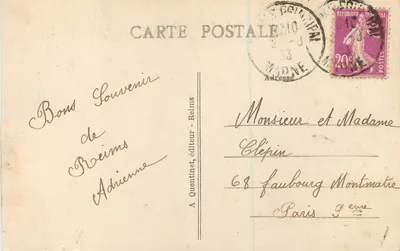 CARTE POSTALE
MARNE
20c
POSTES
Bons Souvenir
de
Reims
Adrienne
A Quentinet, éditeur - Reims
Monsieur et Madame
Clépin
68 faubourg Montmatre
Paris 9eme